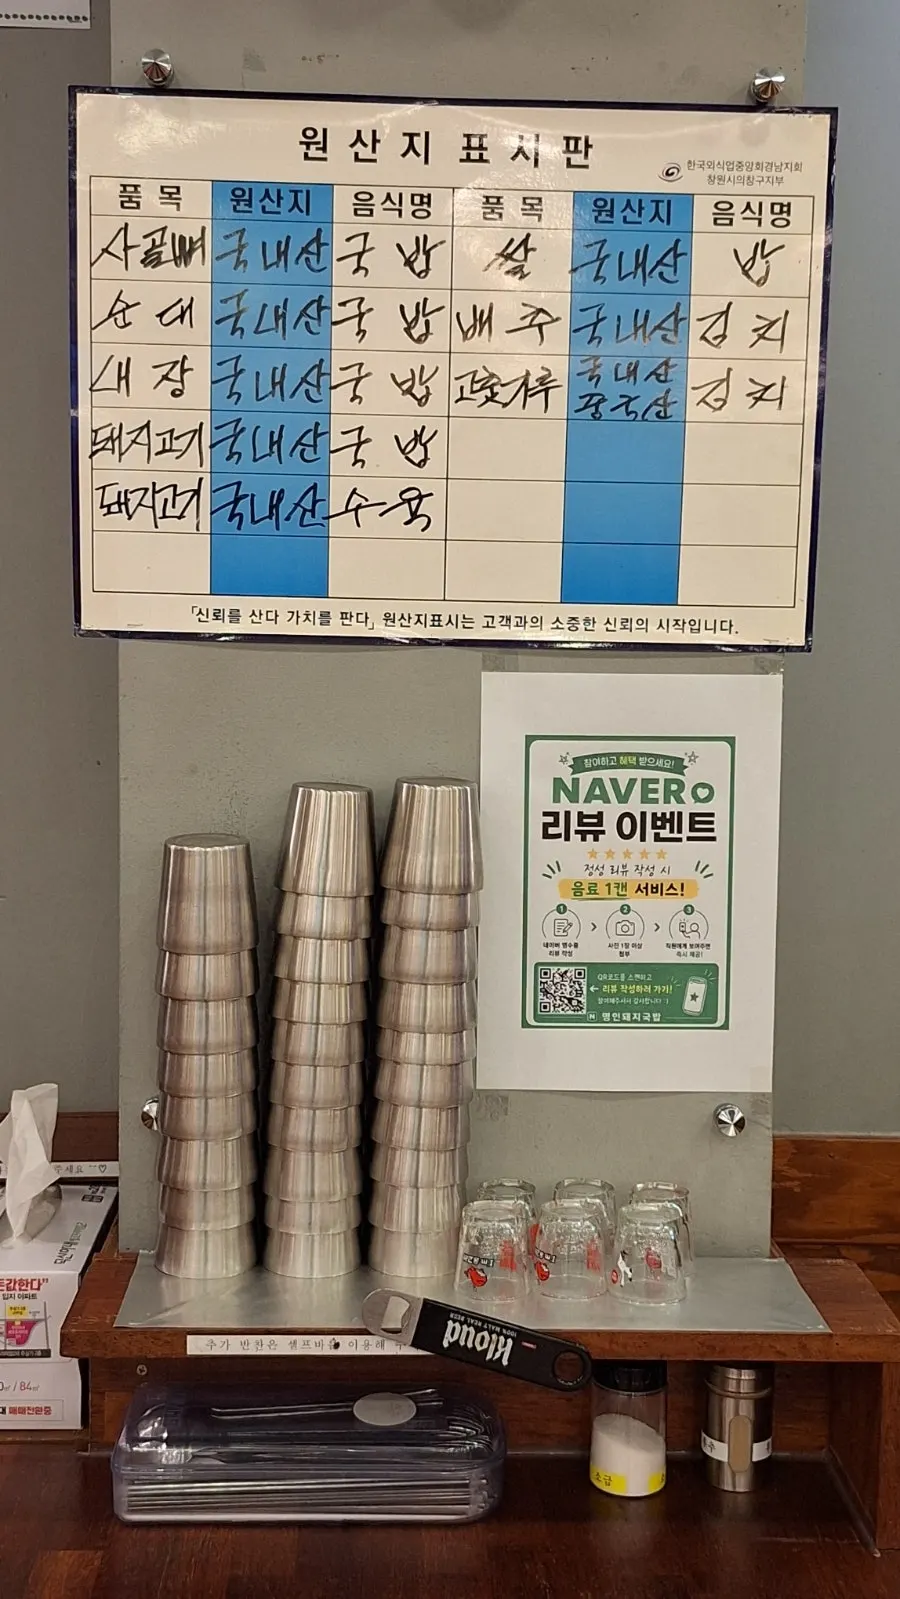 원산지 표시판
한국외식업중앙회경남지회
창원시의창구지부
품목 원산지 음식명 품목 원산지 음식명
사골뼈 국내산 국밥 쌀 국내산 밥
순대 국내산 국밥 배추 국내산 김치
내장 국내산 국밥 고춧가루 국내산 중국산 김치
돼지고기 국내산 국밥
돼지고기 국내산 수육
「신뢰를 산다 가치를 판다」 원산지표시는 고객과의 소중한 신뢰의 시작입니다.
참여하고 혜택 받으세요!
NAVER
리뷰 이벤트
정성 리뷰 작성 시
음료 1캔 서비스!
1 2 3
네이버 영수증 리뷰 작성
사진 1장 이상 첨부
직원에게 보여주면 즉시 제공!
QR코드를 스캔하고
← 리뷰 작성하러 가기!
참여해주셔서 감사합니다 :)
N 명인돼지국밥
주세요
돈값한다"
입지 아파트
/ 84㎡
매매전환중
추가 반찬은 셀프바를 이용해
Kloud
100% MALT REAL BEER
소금
후추